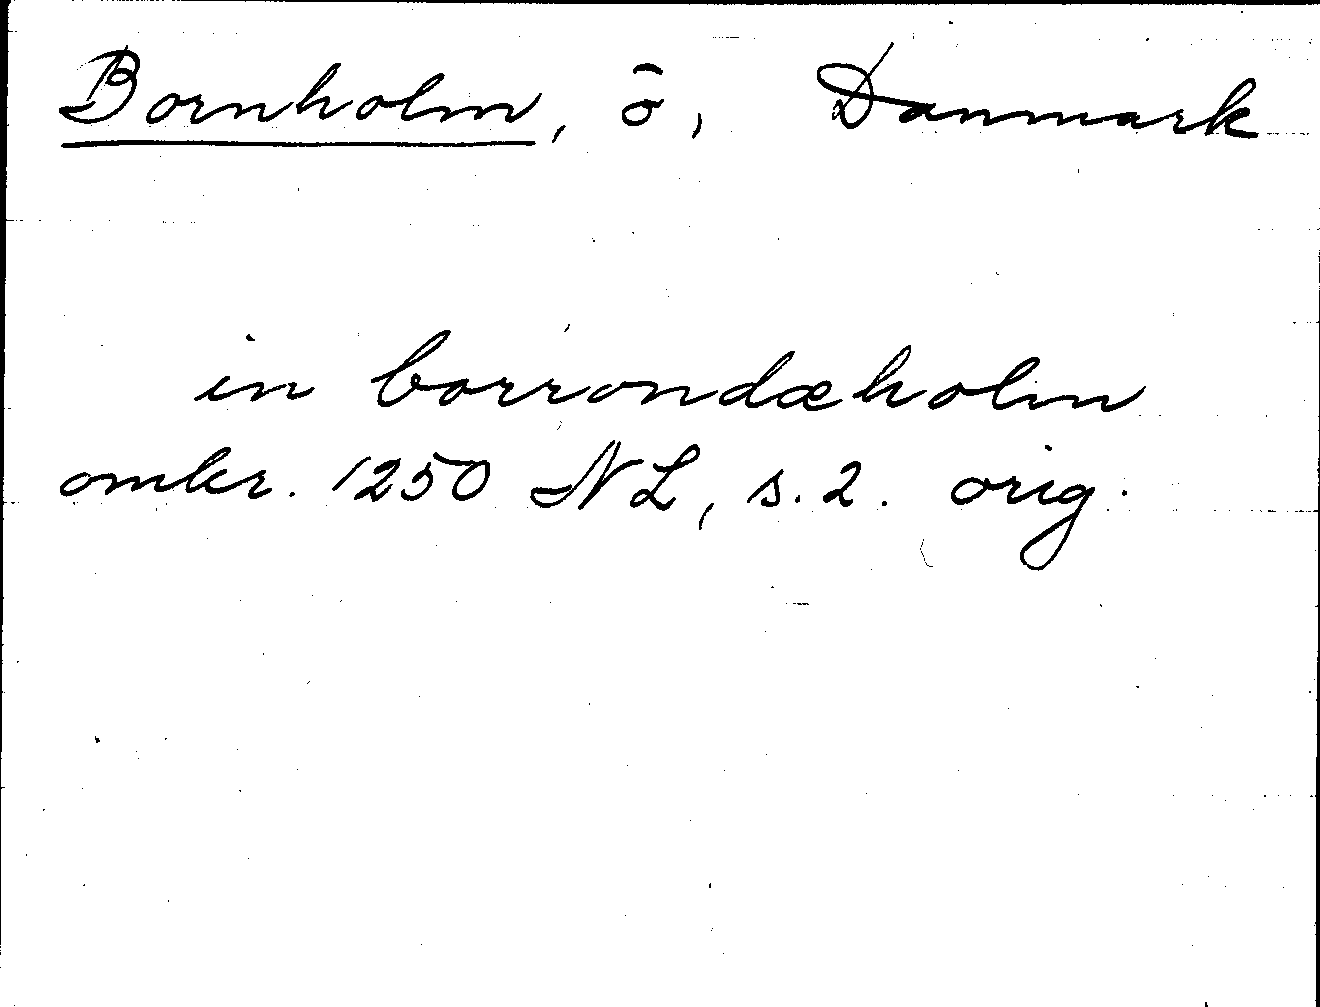 Bornholm, ö, Danmark
in borrondæholm
omkr. 1250 NL, s. 2. orig.